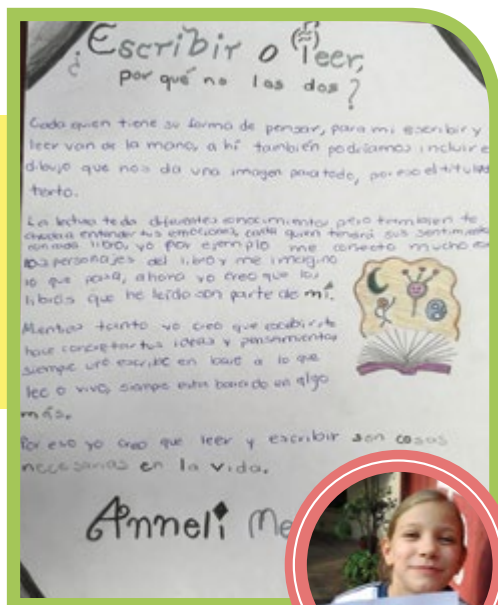 ¿Escribir o leer,
por qué no los dos?
Cada quien tiene su forma de pensar, para mi escribir y
leer van de la mano, a hí también podríamos incluir e
dibujo que nos da una imagen para todo, por eso el titulo
texto.
La lectura te da diferentes conocimientos pero tambien te
ayudara entender tus emociones, cada quien tendrá sus sentimient
con cada libro, yo por ejemplo me conecto mucho
los personajes del libro y me imagino
lo que pasa, ahora yo creo que los
libros que he leído son parte de mí.
Mientras tanto yo creo que escribir te
hace concretar tus ideas y pensamientos
siempre uno escribe en base a lo que
lee o vive, siempre esta basado en algo
más.
Por eso yo creo que leer y escribir son cosas
necesarias en la vida.
Anneli Me